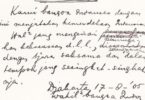 Kami bangsa Indonesia dengan ini
menjatakan kemerdekaan Indonesia.
Hal2 yang mengenai
kekoeasaan d.l.l., di
dengan tjara saksama dan dalam
tempoh jang sesingkat-singkat
Djakarta, 17 - 8 - 05
Wakil2 bangsa Indon